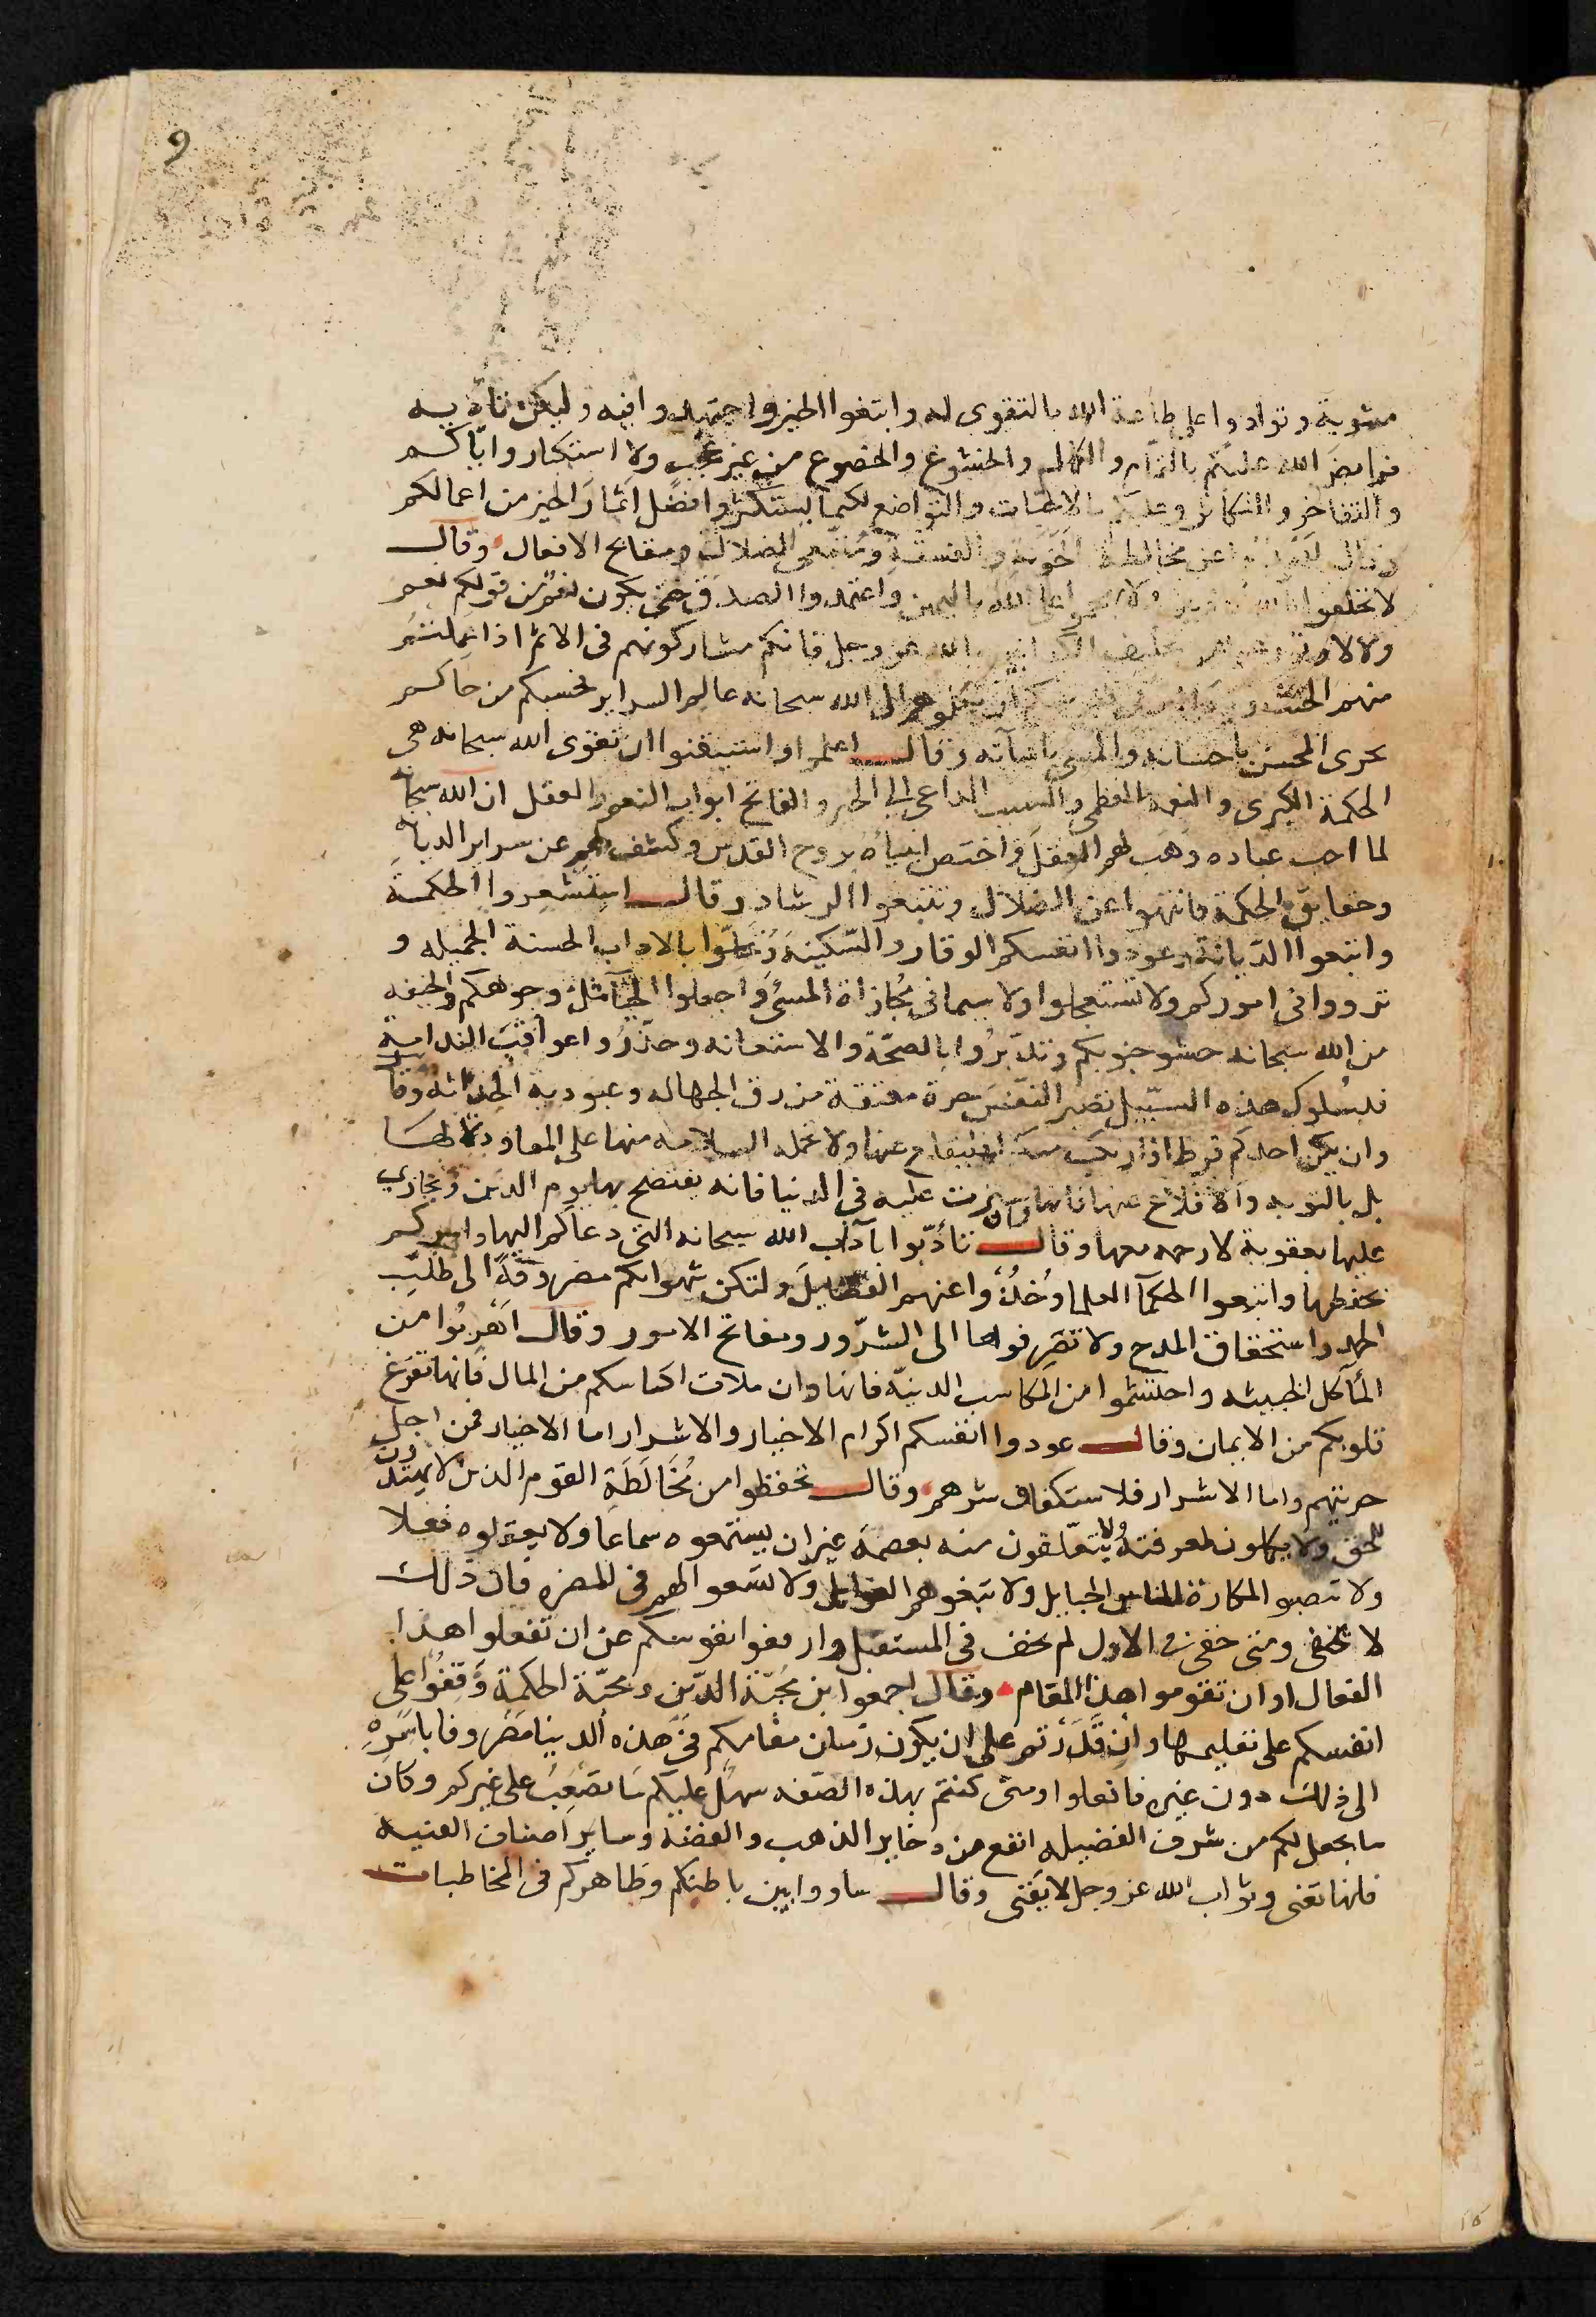 9
مشوبة وتوادوا على طاعة الله بالتقوى له وابتغوا الخير واجتهدوا فيه وليكن تاديه
فرايض الله عليكم بالتمام والكمال والخشوع والخضوع من غير عجب ولا استكبار واياكم
والتفاخر والتكاثر وعليكم بالاخبات والتواضع لكيما تستكثروا افضل اثمار الخير من اعمالكم
وقال ابعدوا عن مخالطة الخونة والفسقة ومتبعى الضلالة ومقابح الافعال وقال
لا تحلفوا بالله كاذبين ولا تهجموا على الله باليمين واعتمدوا الصدق حتى يكون نعم من قولكم نعم
ولا لا وتورعوا من تحليف الكذابين بالله عز وجل فانكم مشاركونهم فى الاثم اذا علمتم
منهم الحنث وليكن الاوثق فى نفوسكم ان تكلوهم الى الله سبحانه عالم السراير فحسبكم من حاكم
يجزى المحسن باحسانه والمسى باساته وقال اعلموا واستيقنوا ان تقوى الله سبحانه هى
الحكمة الكبرى والنعمة العظمى والسبب الداعى الى الخير والفاتح ابواب الفهم والعقل ان الله سبحانه
لما احب عباده وهب لهم العقل واختص انبياه بروح القدس وكشف لهم عن سراير الديانة
وحقايق الحكمة فانتهوا عن الضلال وتتبعوا الرشاد وقال استشعروا الحكمة
واتبعوا الديانة وعودوا انفسكم الوقار والسكينة وتحلوا بالاداب الحسنة الجميله و
ترووا فى اموركم ولا تستعجلوا ولا سيما فى مجازاة المسئ واجعلوا الحيا مثل وجوهكم والخيفة
من الله سبحانه حشو جنوبكم وتدبروا بالصحة والاستعانه وحذروا عواقب الندامه
فبسلوك هذه السبيل تصير النفس حرة معتقة من رق الجهاله وعبودية الحداثه وقال
وان يكن احدكم فرط اذا ارتكب منكرا فليقلع عنها ولا تحمله السلامه منها على المعاودة لها
بل بالتوبه والاقلاع عنها فانها وان سترت عليه فى الدنيا فانه يفتضح بها يوم الدين ويجازى
عليها بعقوبة لا رحمه معها وقال تادبوا باداب الله سبحانه التى دعاكم اليها وامركم
بحفظها واتبعوا الحكما العلما وخذوا عنهم الفضايل ولتكن شهواتكم مصروفة الى طلب
الحمد واستحقاق المدح ولا تصرفوها الى الشرور ومقابح الامور وقال اهربوا من
المآكل الخبيثه واحتشموا من المكاسب الدنية فانها وان ملات اكياسكم من المال فانها تفرغ
قلوبكم من الايمان وقال عودوا انفسكم اكرام الاخيار والاشرار اما الاخيار فمن اجل
حريتهم واما الاشرار فلاستكفاف شرهم وقال تحفظوا من مخالطة القوم الذين لا يهتدون
للحق ولا يكملون لمعرفته ولا يتعلقون منه بعصمة غير ان يستمعوه سماعا ولا يعقلوه فعلا
ولا تنصبوا المكاره للناس الحبايل ولا تبغوهم الغوايل ولا تسعوا لهم فى المضره فان ذلك
لا يخفى ومتى خفى فى الاول لم يخف فى المستقبل وارفعوا نفوسكم عن ان تفعلوا هذا
الفعال او ان تقوموا هذا المقام وقال اجمعوا بين محبة الدين ومحبة الحكمة وقفوا على
انفسكم على تعليمها وان قدرتم على ان يكون زمان مقامكم فى هذه الدنيا مصروفا باسره
الى ذلك دون غيره فافعلوا ومتى كنتم بهذه الصفه سهل عليكم ما تصعب على غيركم وكان
ما يجعل لكم من شرف الفضيله انفع من ذخاير الذهب والفضة وساير اصناف القنية
فانها تفنى وثواب الله عز وجل لا يفنى وقال ساووا بين باطنكم وظاهركم فى المخاطبات